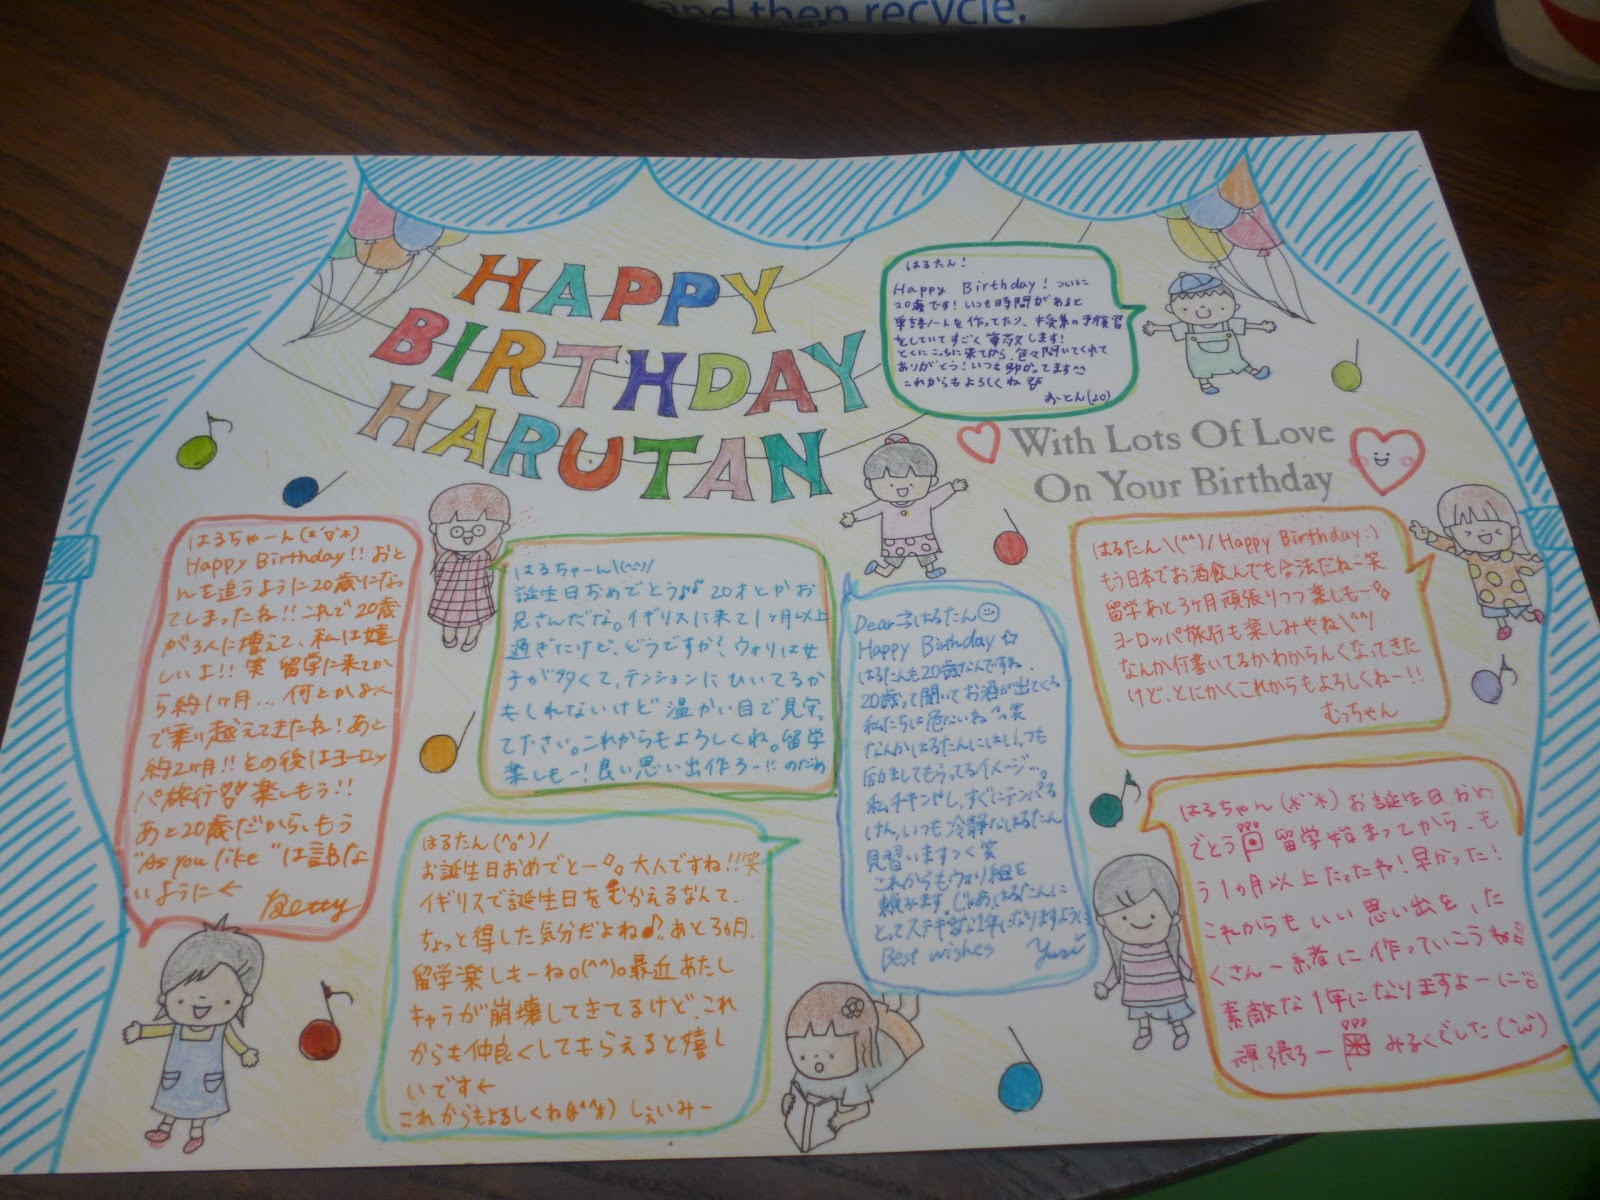 and then recycle.
HAPPY
BIRTHDAY
HARUTAN
はるたん!
Happy Birthday! ついに
20歳です! いつも時間があると
単語ノートを作ってたり、授業の予復習
をしていてすごく尊敬します!
とくにこっちに来てから、色々聞いてくれて
ありがとう! いつも助かってます
これからもよろしくね
おとん(20)
With Lots Of Love
On Your Birthday
はるちゃーん(*´▽`*)
Happy Birthday!! おと
んを追うように20歳になっ
てしまったね!! これで20歳
が3人に増えて、私は嬉
しいよ!! 笑 留学に来てか
ら約1ヶ月... 何とか8人
で乗り越えてきたね! あと
約2ヶ月!! その後はヨーロッ
パ旅行 楽しもう!!
あと20歳だから、もう
"As you like" は訳な
いように←
Betty
はるちゃーん\(^^)/
誕生日おめでとう♪♪ 20才とかお
兄さんだな。イギリスに来て1ヶ月以上
過ぎたけど、どうですか? ウォリは女
子が多くて、テンションにひいてるか
もしれないけど温かい目で見守っ
て下さい。これからもよろしくね。留学
楽しもー! 良い思い出作ろー!! のだめ
はるたん(^o^)/
お誕生日おめでとー。大人ですね!!笑
イギリスで誕生日をむかえるなんて、
ちょっと得した気分だよね♪!! あと3ヵ月、
留学楽しもーね。(^^)。最近あたし
キャラが崩壊してきてるけど、これ
からも仲良くしてもらえると嬉し
いです←
これからもよろしくね(*^^*) しぇいみー
Dear⇒はるたん☺
Happy Birthday ☆
はるたんも20歳なんですね、
20歳って聞いてお酒が出てくる
私たちは危ないね 笑
なんかはるたんにはいっつも
励ましてもらってるイメージ…。
私チキンやし、すぐにテンパる
けん、いつも冷静なはるたん
見習いますっ 笑
これからもウォリ組を
頼みます。じゃあ、はるたんに
とってステキな1年になりますように
Best wishes Yuri
はるたん\(^^)/ Happy Birthday:)
もう日本でお酒飲んでも合法だねー笑
留学あと3ヶ月頑張りつつ楽しもー
ヨーロッパ旅行も楽しみやね\^^/
なんか何書いてるかわからんくなってきた
けど、とにかくこれからもよろしくねー!!
むっちゃん
はるちゃん(*^^*) お誕生日おめ
でとう 留学始まってから、も
う1ヵ月以上たったね! 早かった!
これからもいい思い出を、た
くさん一緒に作っていこうね
素敵な1年になりますよーに
頑張ろー みるくでした(^ω^)